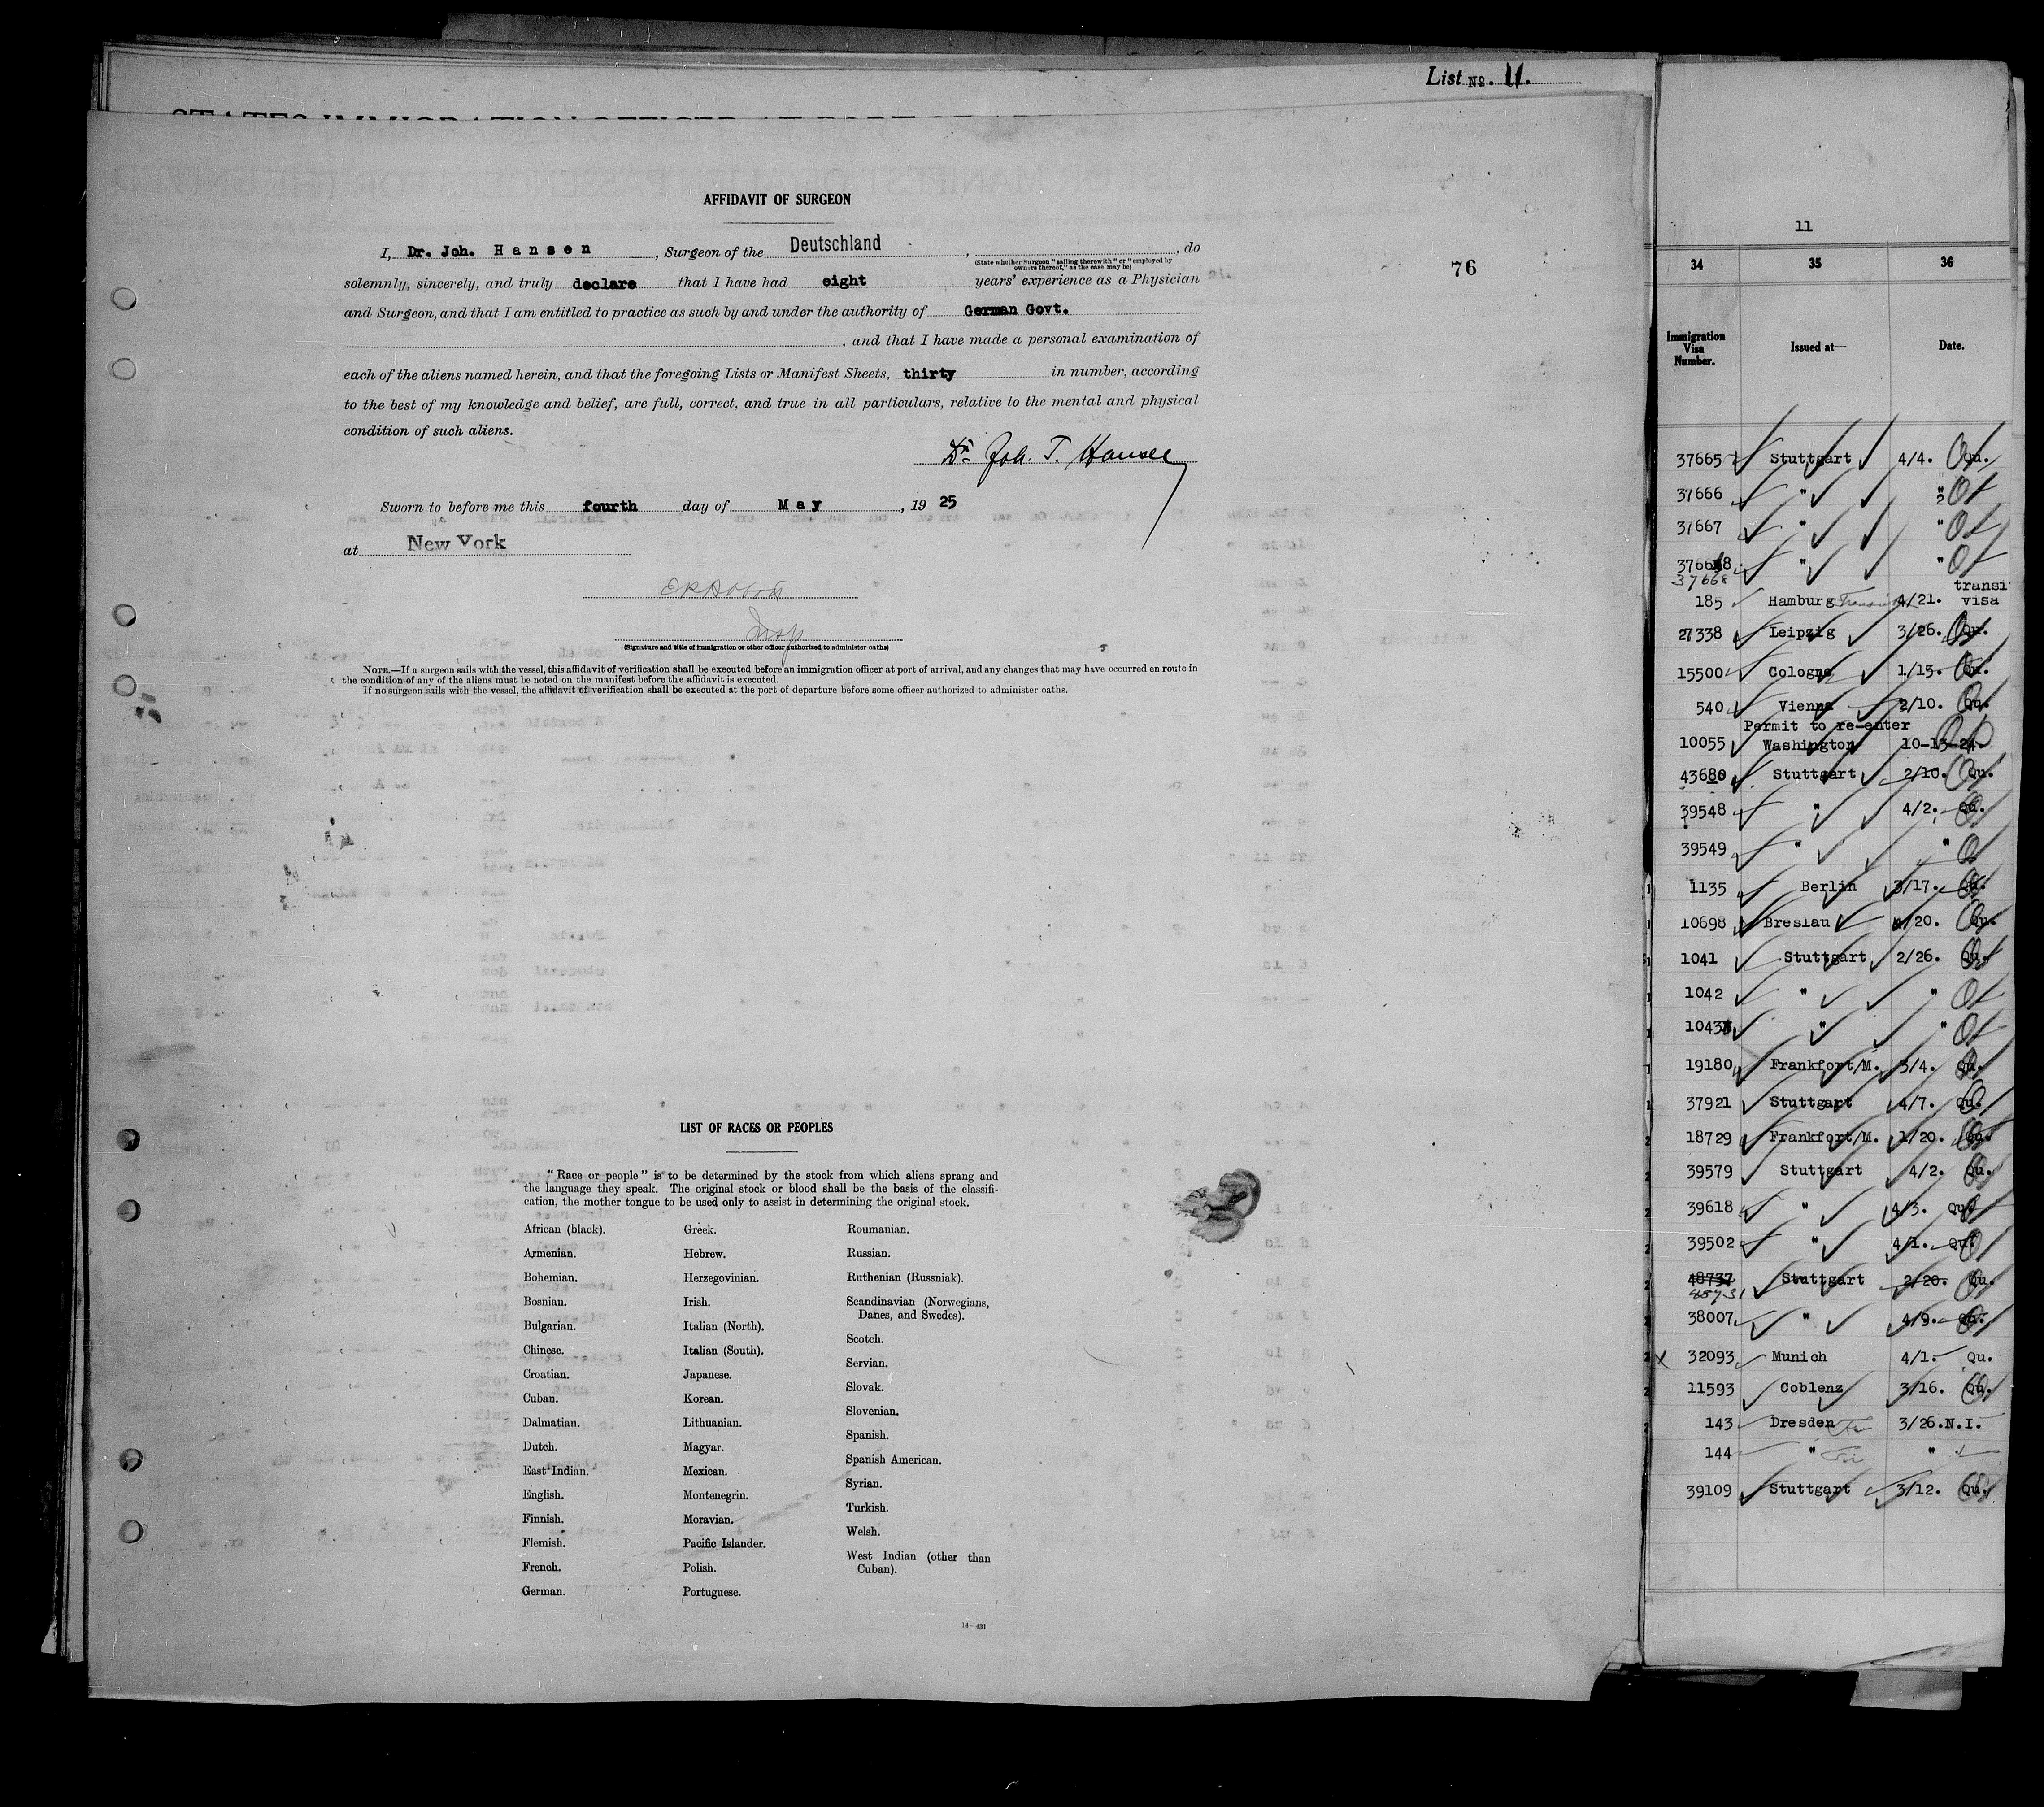 List No. 11.
AFFIDAVIT OF SURGEON
I, Dr. Joh. Hansen, Surgeon of the Deutschland, , do
(State whether Surgeon "sailing therewith" or "employed by
owners thereof," as the case may be)
76
solemnly, sincerely, and truly declare that I have had eight years' experience as a Physician
and Surgeon, and that I am entitled to practice as such by and under the authority of German Govt.
, and that I have made a personal examination of
each of the aliens named herein, and that the foregoing Lists or Manifest Sheets, thirty in number, according
to the best of my knowledge and belief, are full, correct, and true in all particulars, relative to the mental and physical
condition of such aliens.
Dr. Joh. T. Hansen
Sworn to before me this fourth day of May, 19 25
at New York
Insp
(Signature and title of immigration or other officer authorized to administer oaths)
NOTE.—If a surgeon sails with the vessel, this affidavit of verification shall be executed before an immigration officer at port of arrival, and any changes that may have occurred en route in
the condition of any of the aliens must be noted on the manifest before the affidavit is executed.
If no surgeon sails with the vessel, the affidavit of verification shall be executed at the port of departure before some officer authorized to administer oaths.
LIST OF RACES OR PEOPLES
"Race or people" is to be determined by the stock from which aliens sprang and
the language they speak. The original stock or blood shall be the basis of the classifi-
cation, the mother tongue to be used only to assist in determining the original stock.
African (black).
Armenian.
Bohemian.
Bosnian.
Bulgarian.
Chinese.
Croatian.
Cuban.
Dalmatian.
Dutch.
East Indian.
English.
Finnish.
Flemish.
French.
German.
Greek.
Hebrew.
Herzegovinian.
Irish.
Italian (North).
Italian (South).
Japanese.
Korean.
Lithuanian.
Magyar.
Mexican.
Montenegrin.
Moravian.
Pacific Islander.
Polish.
Portuguese.
Roumanian.
Russian.
Ruthenian (Russniak).
Scandinavian (Norwegians,
Danes, and Swedes).
Scotch.
Servian.
Slovak.
Slovenian.
Spanish.
Spanish American.
Syrian.
Turkish.
Welsh.
West Indian (other than
Cuban).
14—431
11
34 35 36
Immigration
Visa
Number.
Issued at—
Date.
37665 Stuttgart 4/4. Qu.
37666 " "
37667 " "
37668 " "
37668
185 Hamburg Transit 4/21. transit visa
27338 Leipzig 3/26. Qu.
15500 Cologne 1/15. Qu.
540 Vienna 2/10. Qu.
Permit to re-enter
10055 Washington 10-13-24.
43680 Stuttgart 2/10. Qu.
39548 " 4/2. Qu.
39549 " "
1135 Berlin 3/17. Qu.
10698 Breslau 4/20. Qu.
1041 Stuttgart 2/26. Qu.
1042 " "
1043 " "
19180 Frankfort/M. 3/4. Qu.
37921 Stuttgart 4/7. Qu.
18729 Frankfort/M. 1/20. Qu.
39579 Stuttgart 4/2. Qu.
39618 " 4/3. Qu.
39502 " 4/1. Qu.
48737 Stuttgart 2/20. Qu.
45731
38007 " 4/9. Qu.
32093 Munich 4/1. Qu.
11593 Coblenz 3/16. Qu.
143 Dresden 3/26. N.I.
144 " "
39109 Stuttgart 3/12. Qu.